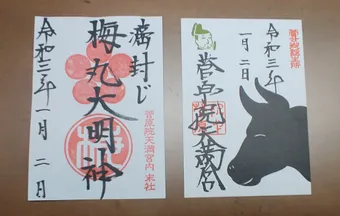 満封じ
梅丸大明神
菅原院天満宮内 末社
令和三年一月二日
令和三年
一月二日
菅原院天満宮